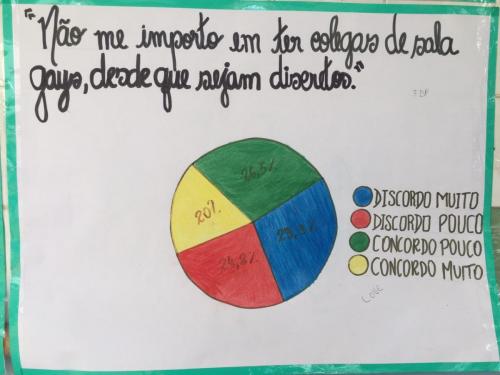 "Não me importo em ter colegas de sala
gays, desde que sejam discretos."
26,5%
20%
24,8%
DISCORDO MUITO
DISCORDO POUCO
CONCORDO POUCO
CONCORDO MUITO